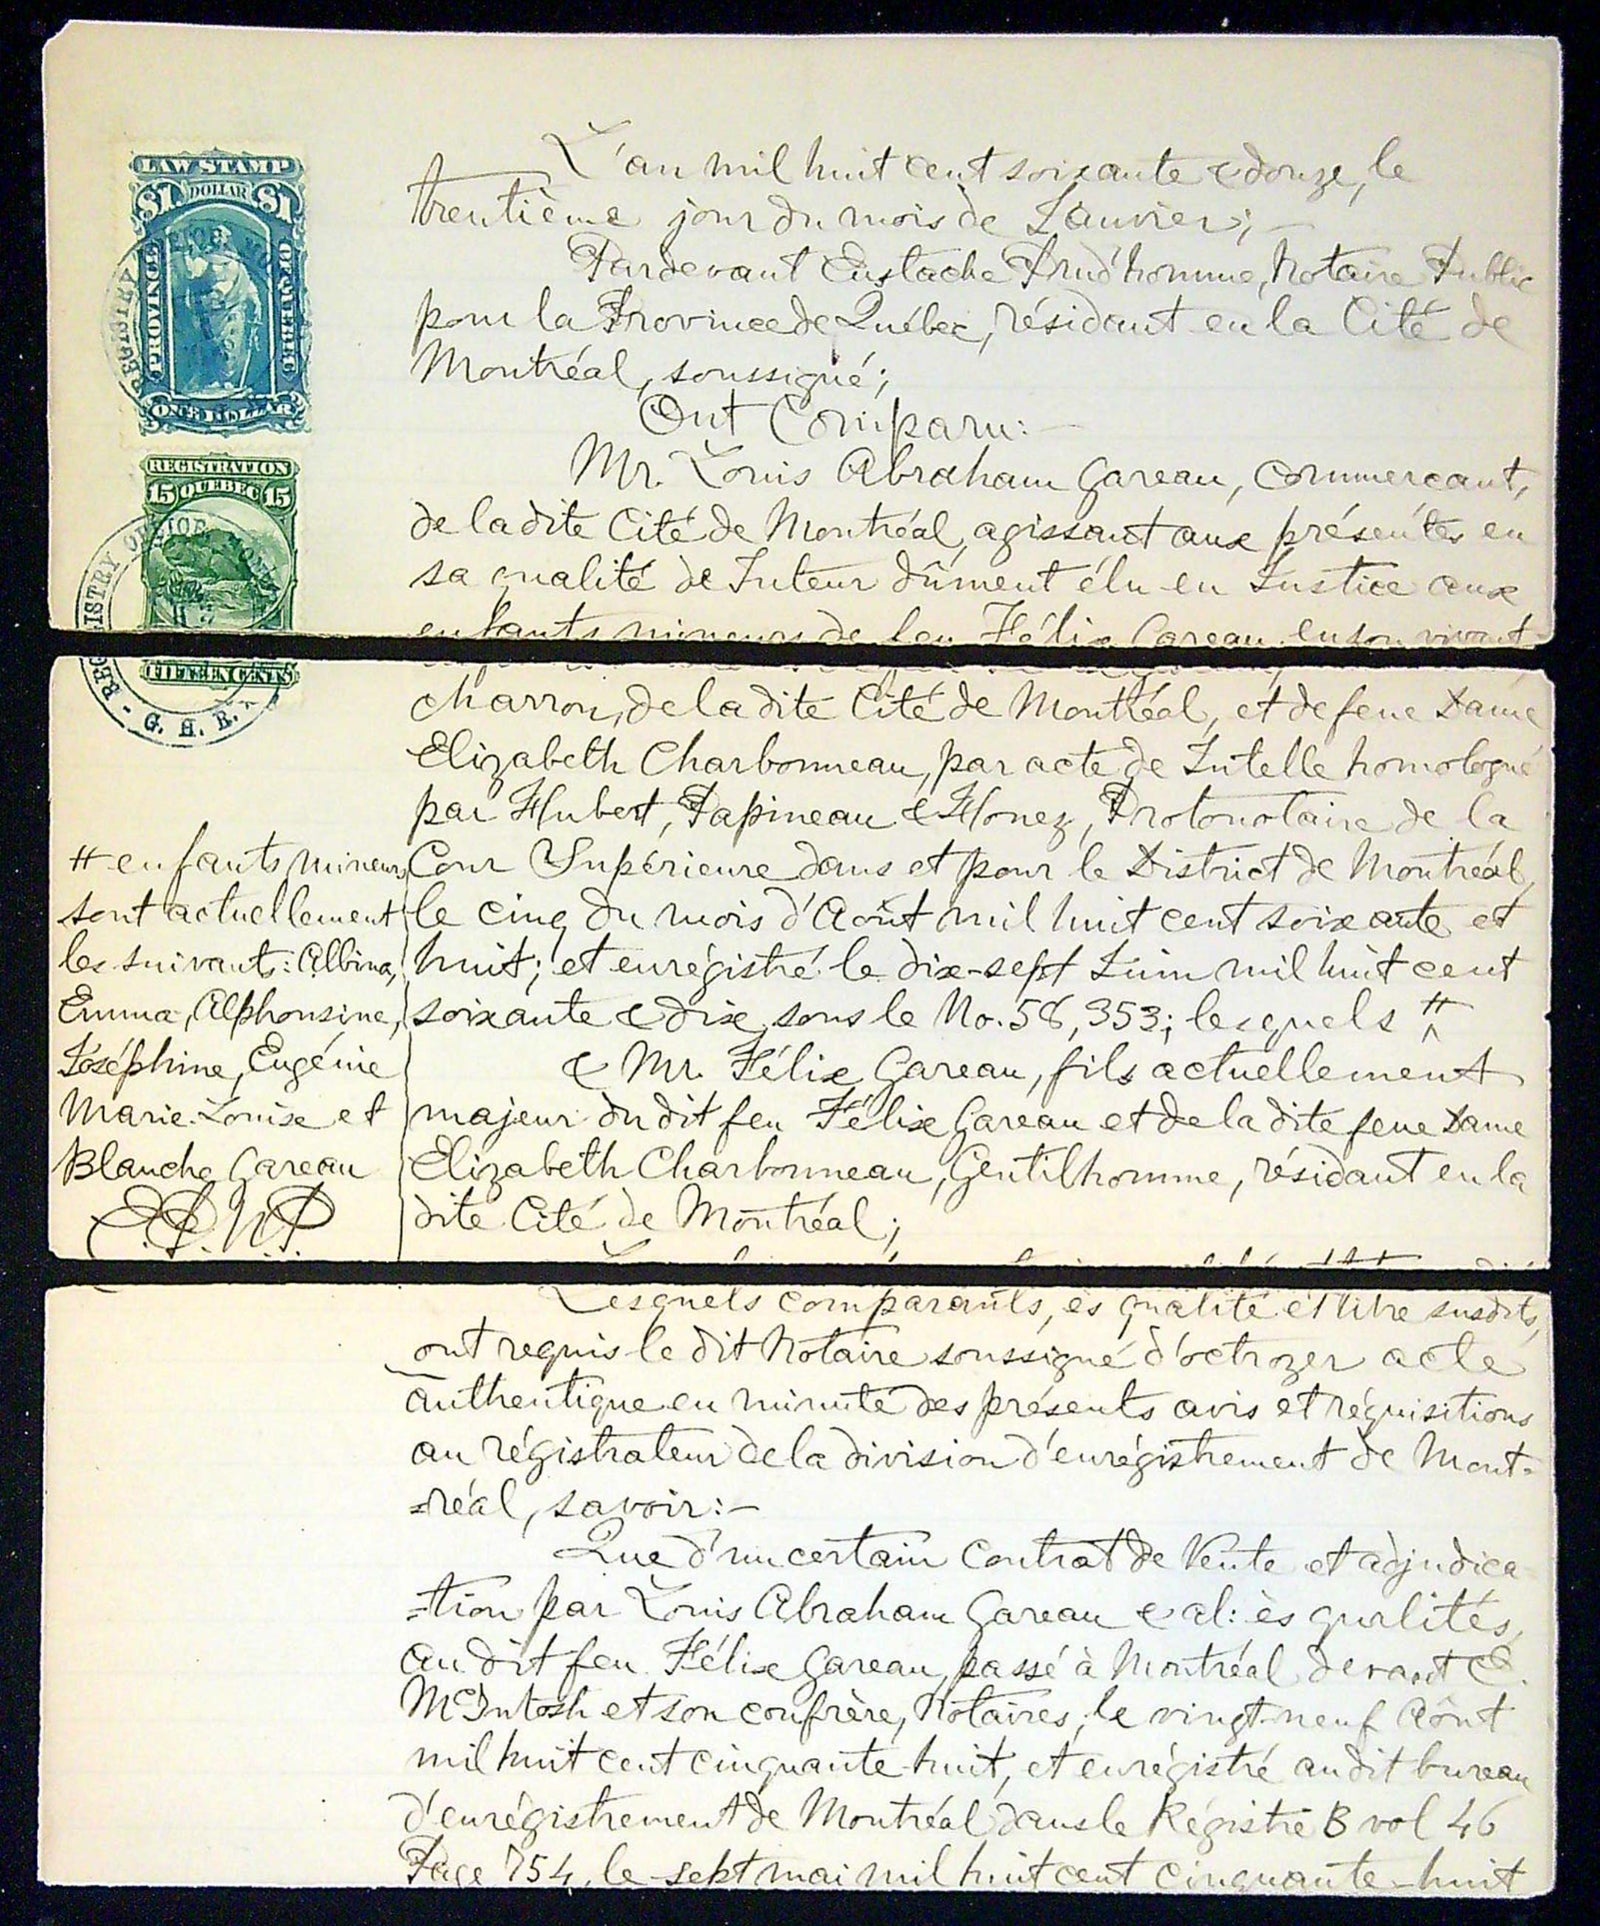 LAW STAMP
$1 DOLLAR $1
PROVINCE OF QUEBEC
ONE DOLLAR
REGISTRATION
15 QUEBEC 15
FIFTEEN CENTS
REGISTRY OFFICE
G. H. R.
L'an mil huit cent soixante & douze, le
trentième jour du mois de Janvier; –
Pardevant Eustache Prud'homme, Notaire Public
pour la Province de Québec, résidant en la Cité de
Montréal, soussigné;
Ont Comparu: –
Mr. Louis Abraham Gareau, Commerçant,
de la dite Cité de Montréal, agissant aux présentes en
sa qualité de Tuteur dûment élu en Justice aux
enfants mineurs de feu Félix Gareau, en son vivant
charron, de la dite Cité de Montréal, et de feue Dame
Elizabeth Charbonneau, par acte de Tutelle homologué
par Hubert, Papineau & Honey, Protonotaire de la
Cour Supérieure dans et pour le District de Montréal,
le cinq du mois d'Août mil huit cent soixante et
huit; et enrégistré le dix-sept Juin mil huit cent
soixante & dix, sous le No. 58,353; lesquels #
& Mr. Félix Gareau, fils actuellement
majeur du dit feu Félix Gareau et de la dite feue Dame
Elizabeth Charbonneau, Gentilhomme, résidant en la
dite Cité de Montréal;
# enfants mineurs
sont actuellement
les suivants: Albina,
Emma, Alphonsine,
Joséphine, Eugénie
Marie-Louise et
Blanche Gareau
Lesquels comparants, ès qualité et titre susdits,
ont requis le dit Notaire soussigné d'octroyer acte
authentique en minute des présents avis et réquisitions
au régistrateur de la division d'enrégistrement de Mont=
=réal, savoir: –
Que d'un certain Contrat de Vente et adjudica
=tion par Louis Abraham Gareau & al: ès qualités,
au dit feu Félix Gareau, passé à Montréal devant E.
McIntosh et son confrère, Notaires, le vingt-neuf Août
mil huit cent cinquante-huit, et enrégistré au dit bureau
d'enrégistrement de Montréal dans le Régistre B vol 46
Page 754, le sept mai mil huit cent cinquante-huit